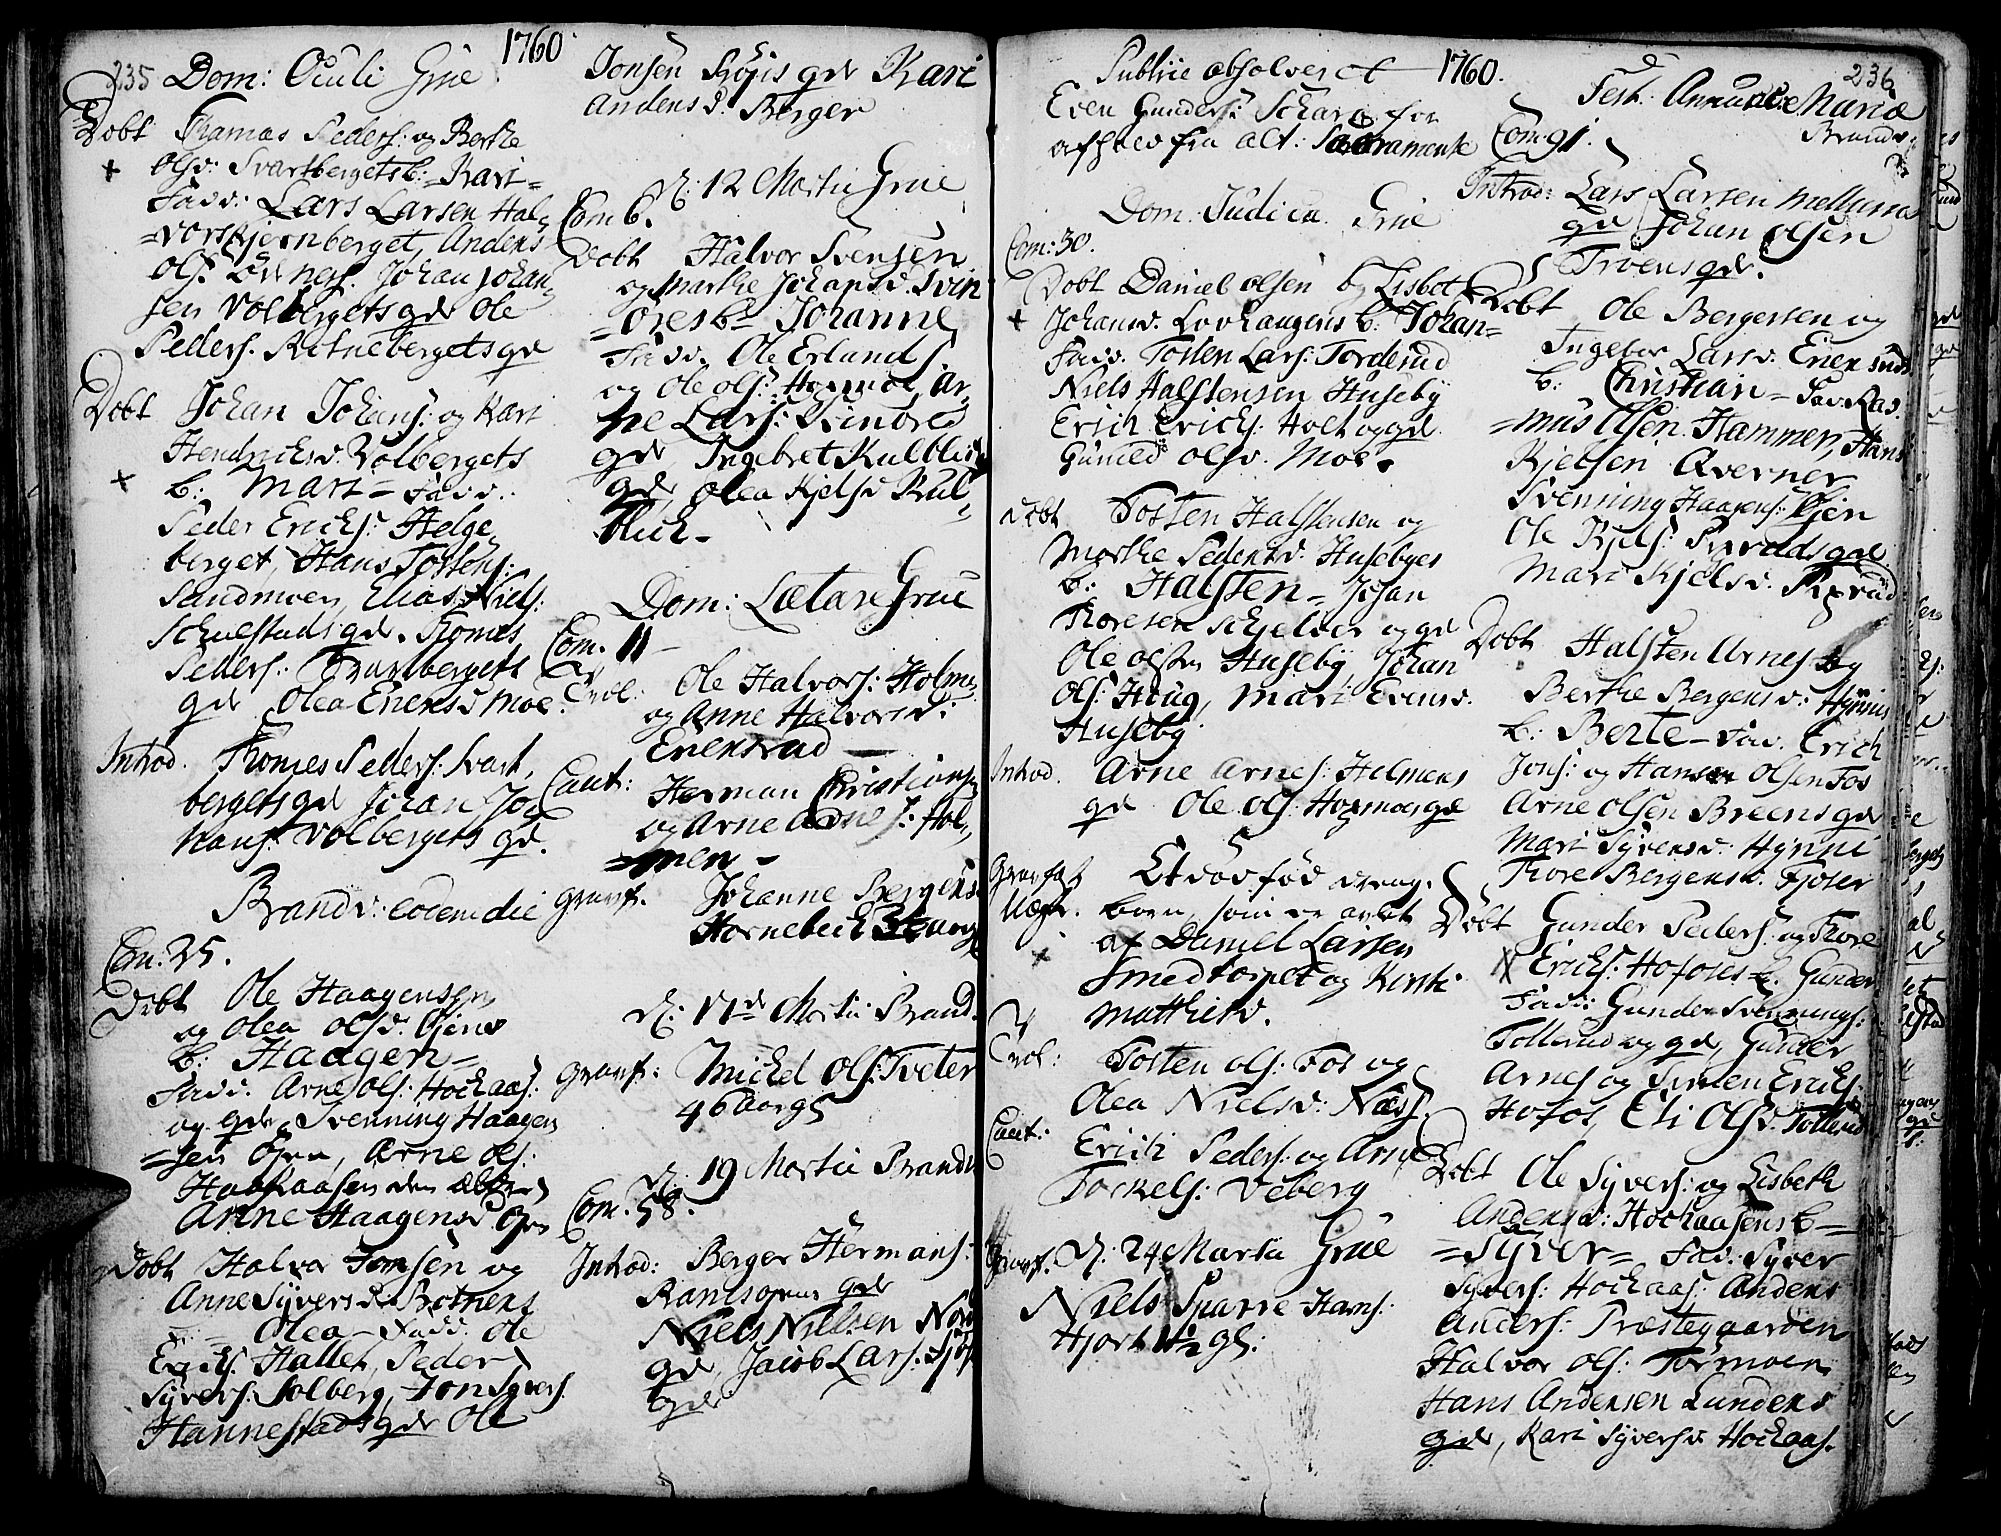 235 Dom: Oculi Grue 1760
Döbt Thamas Peders: og Berthe
Olsd: Svartbergets b: Kari =
Fadd: Lars Larsen Hal=
=vorskjernberget, Anders
Ols: Johan Johan=
sen Volbergets gd Ole
Peders. Rotnebergets gd
Döbt Johan Johans: og Kari
Hendricksd. Volbergets
b: Mari = Fadd:
Peder Ericks: Helge
berget, Hans Tostens:
Sandmoen, Elias Niels:
Schulstads gd. Thomes
Peders: Svartbergets
gd Olea Erensd Moe.
Introd. Thomes Peders: Svart,
bergets gd Johan Jo=
hans: Volbergets gd.
Brandv: eodem die
Com: 25.
Döbt Ole Haagensen
og Olea Olsd: Öjens
b: Haagen =
Fadd: Arne Ols: Hockaas:
og gd, Svenning Haagen
=sen Öjen, Arne Ols:
Hockaasen den
Anne Haagensd Öjen
Döbt Halvor Jonsen og
Anne Syversd Botnens
Olea - Fadd: Ole
Ericks: Halled, Peder
Syvers: Solberg, Jon Syvers.
Hannestads gd Ole
Jonsen gd Kari
Andersd. Berger
D: 12 Martii Grue
Com 6.
Döbt Halvor Svensen
og Marthe Johansd. Svin
=öres b= Johanne
Fadd. Ole Erlands
og Ole Ols: Hormoe, Ar=
ne Lars: Svinöre
gd, Ingebret Kulblich
gd, Olea Kjelsd Kul=
blich -
Dom: Lætare Grue
Com. 11 -
Trol: Ole Halvors: Holme
og Anne Halvorsd:
Erensrud
Caut: Herman Christians:
og Arne Arnes: Hol=
=men -
Gravf. Johanne Bergers
Hornebech
D: 17de Martii Brand.
Gravf: Michel Ols: Tveter
46 aar gl
D. 19 Martii Brandv
Com. 58.
Introd: Berger Hermans:
gd
Niels Nielsen Nor
gd, Jacob Lars:
gd
Publice absolveret 1760.
Even Gunders: for
afhold fra Alt: Sacramente
Dom: Judica Grue
Com: 30.
Döbt Daniel Olsen og Lisbet
Johansd. Lovhaugens b: Johan=
Fadd. Tosten Lars: Torderud
Niels Halstensen Huseby
Erich Ericks: Holt og gd
Guned Olsd. Moe.
Döbt Tosten Halstensen og
Marthe Pedersd. Husebyes
b: Halsten = Johan
Thoresen Schjelver og gd
Ole Olsen Huseby, Johan
Ols: Haug, Mari Evensd.
Huseby
Introd. Arne Arnes: Holmens
gd Ole Ols: Hormoes gd
Gravfæst Et Död föd Drenge
Uægt. barn, som er avlet
af Daniel Larsen
Smedtorpet og Kirsti
Matthisd.
Trol: Tosten Ols: Fos og
Olea Nielsd: Næss.
Caut: Erich Peders: og Arne
Torkels: Veberg
Gravf. D: 24 Martii Grue
Niels Sparre Hans:
Hjort gl:
236
Fest: Annunc: Mariæ
Brandv
Com: 91.
Introd: Lars Larsen Mellum
gd Johan Olsen
Troens gd.
Döbt Ole Bergersen og
Ingebor Larsd. Erensrud
b: Christian = Fad. Ras=
=mus Olsen Hammer, Hans
Kjelsen Averner
Svenning Haagens: Öjen
Ole Kjels: Ryeruds gd
Mari Kjelsd. Ryerud
Döbt Halsten Arnes og
Berthe Bergersd: Hynnis
b: Berte - Fad. Erich
Jons: og Hans Olsen Fos
Arne Olsen Breens gd
Mari Syversd: Hynni
Thore Bergersd. Fjoser
Döbt Gunder Peders: og Thore
Ericks: Hofoses b. Gunder
Fadd: Gunder Svennings:
Tollerud og gd, Gunder
Arnes og Simen Ericks:
Hofos, Eli Olsd. Tollerud
Döbt Ole Syvers: og Lisbeth
Andersd: Hockaasens b =
= Syver = Fad: Syver
Syvers: Hockaas: Anders
Anders: Præstegaarden
Halvor Ols: Tormoen
Hans Andersen Lundens
gd, Kari Syversd Hockaas.